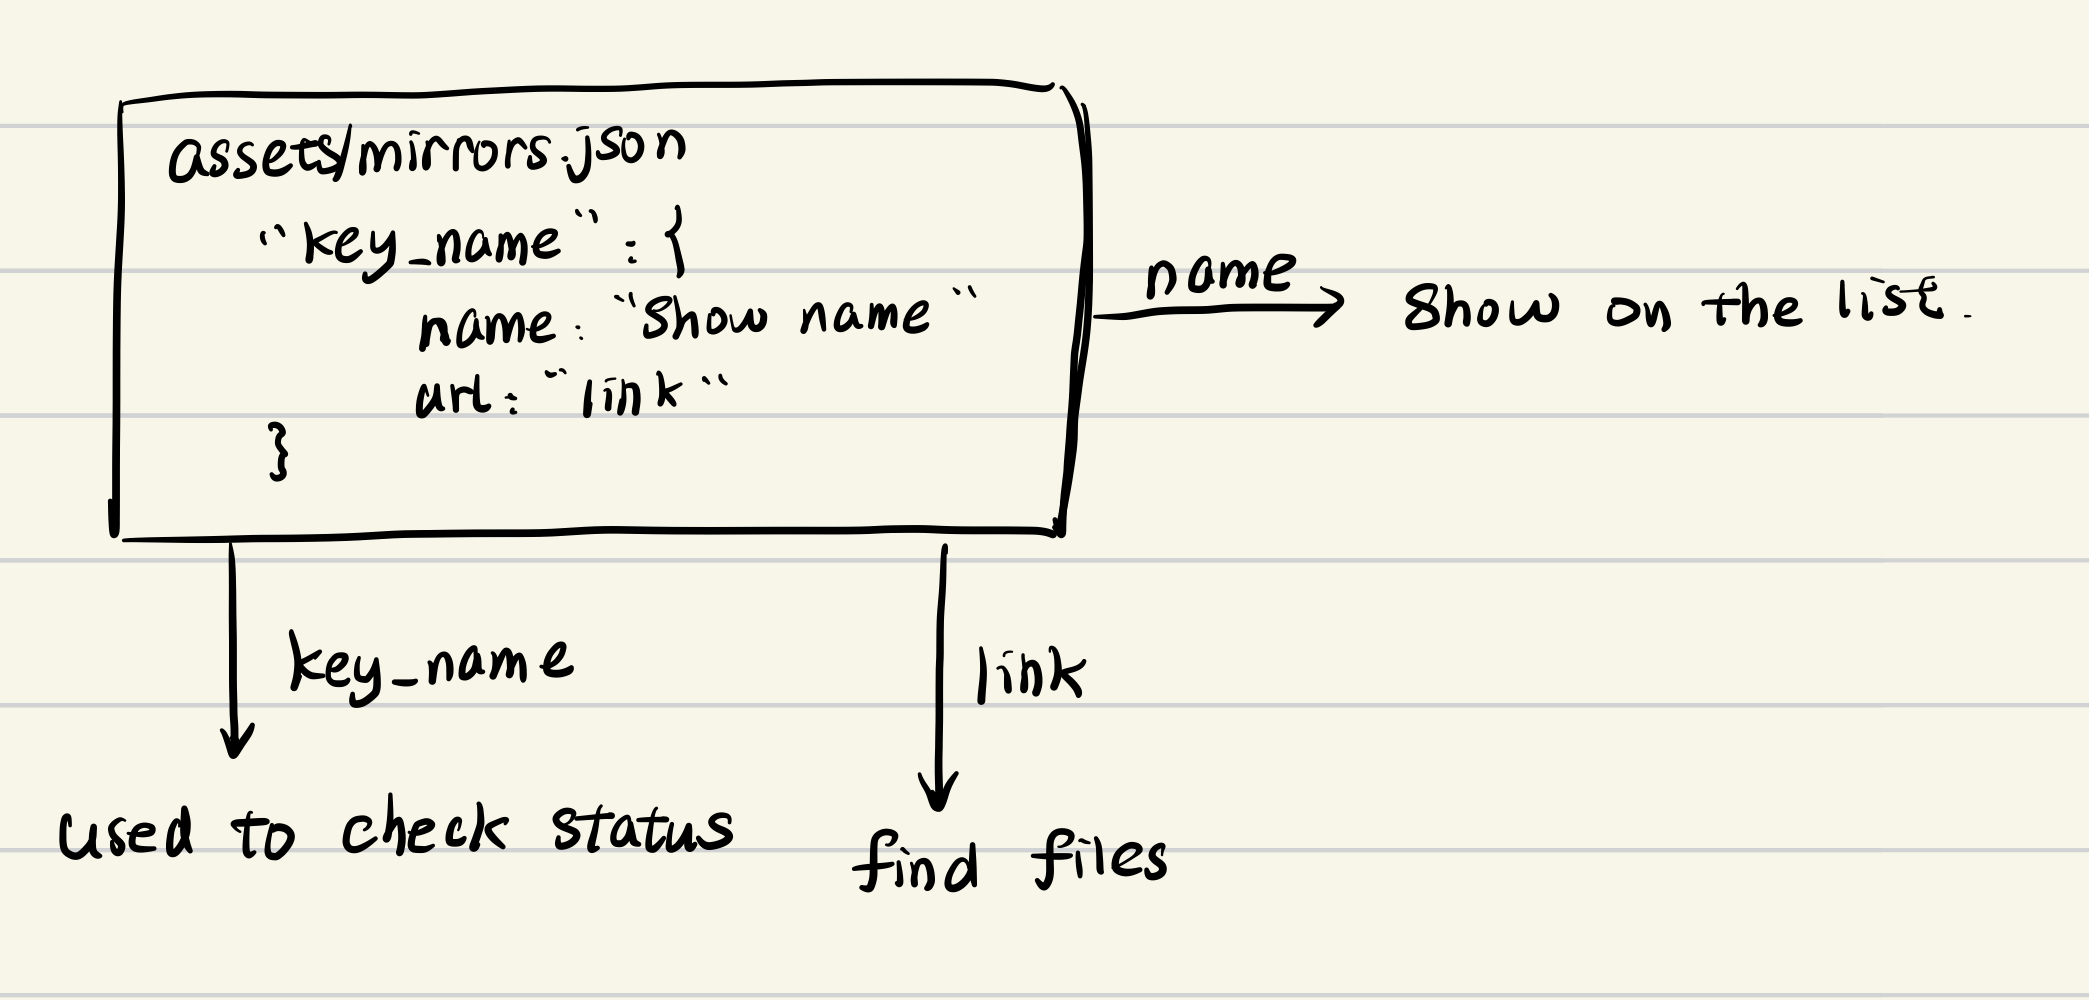 assets/mirrors.json
"key_name" : {
name : "Show name"
url : "link"
}
name
Show on the list.
key_name
link
used to check status
find files